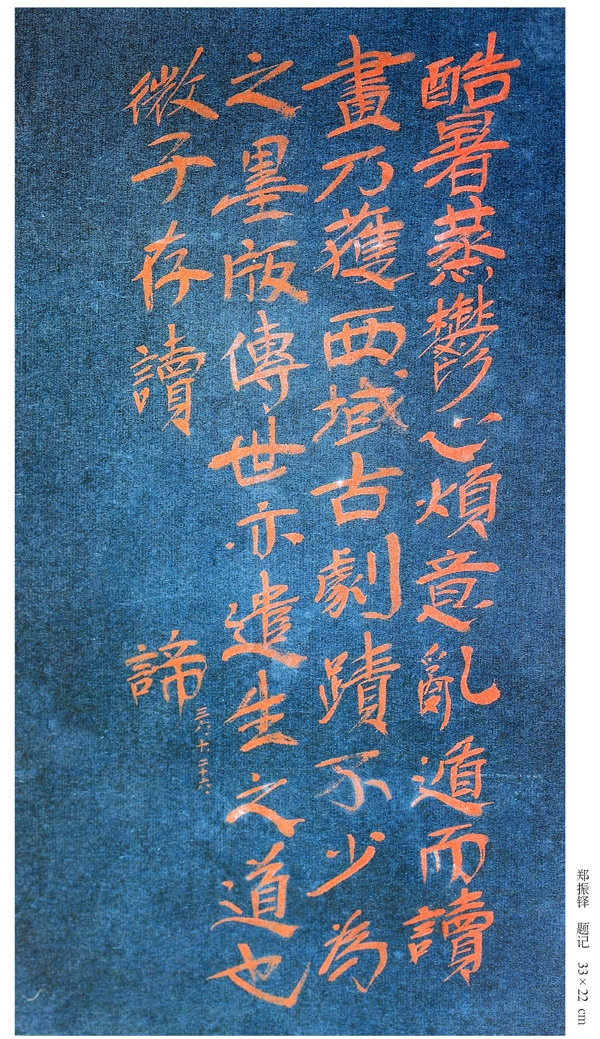 酷暑蒸鬱心煩意亂遁而讀
畫乃獲西域古劇蹟不少為
之墨版傳世亦遣生之道也
微子存讀
諦 三六、十、二十六、
郑振铎 题记 33×22 cm